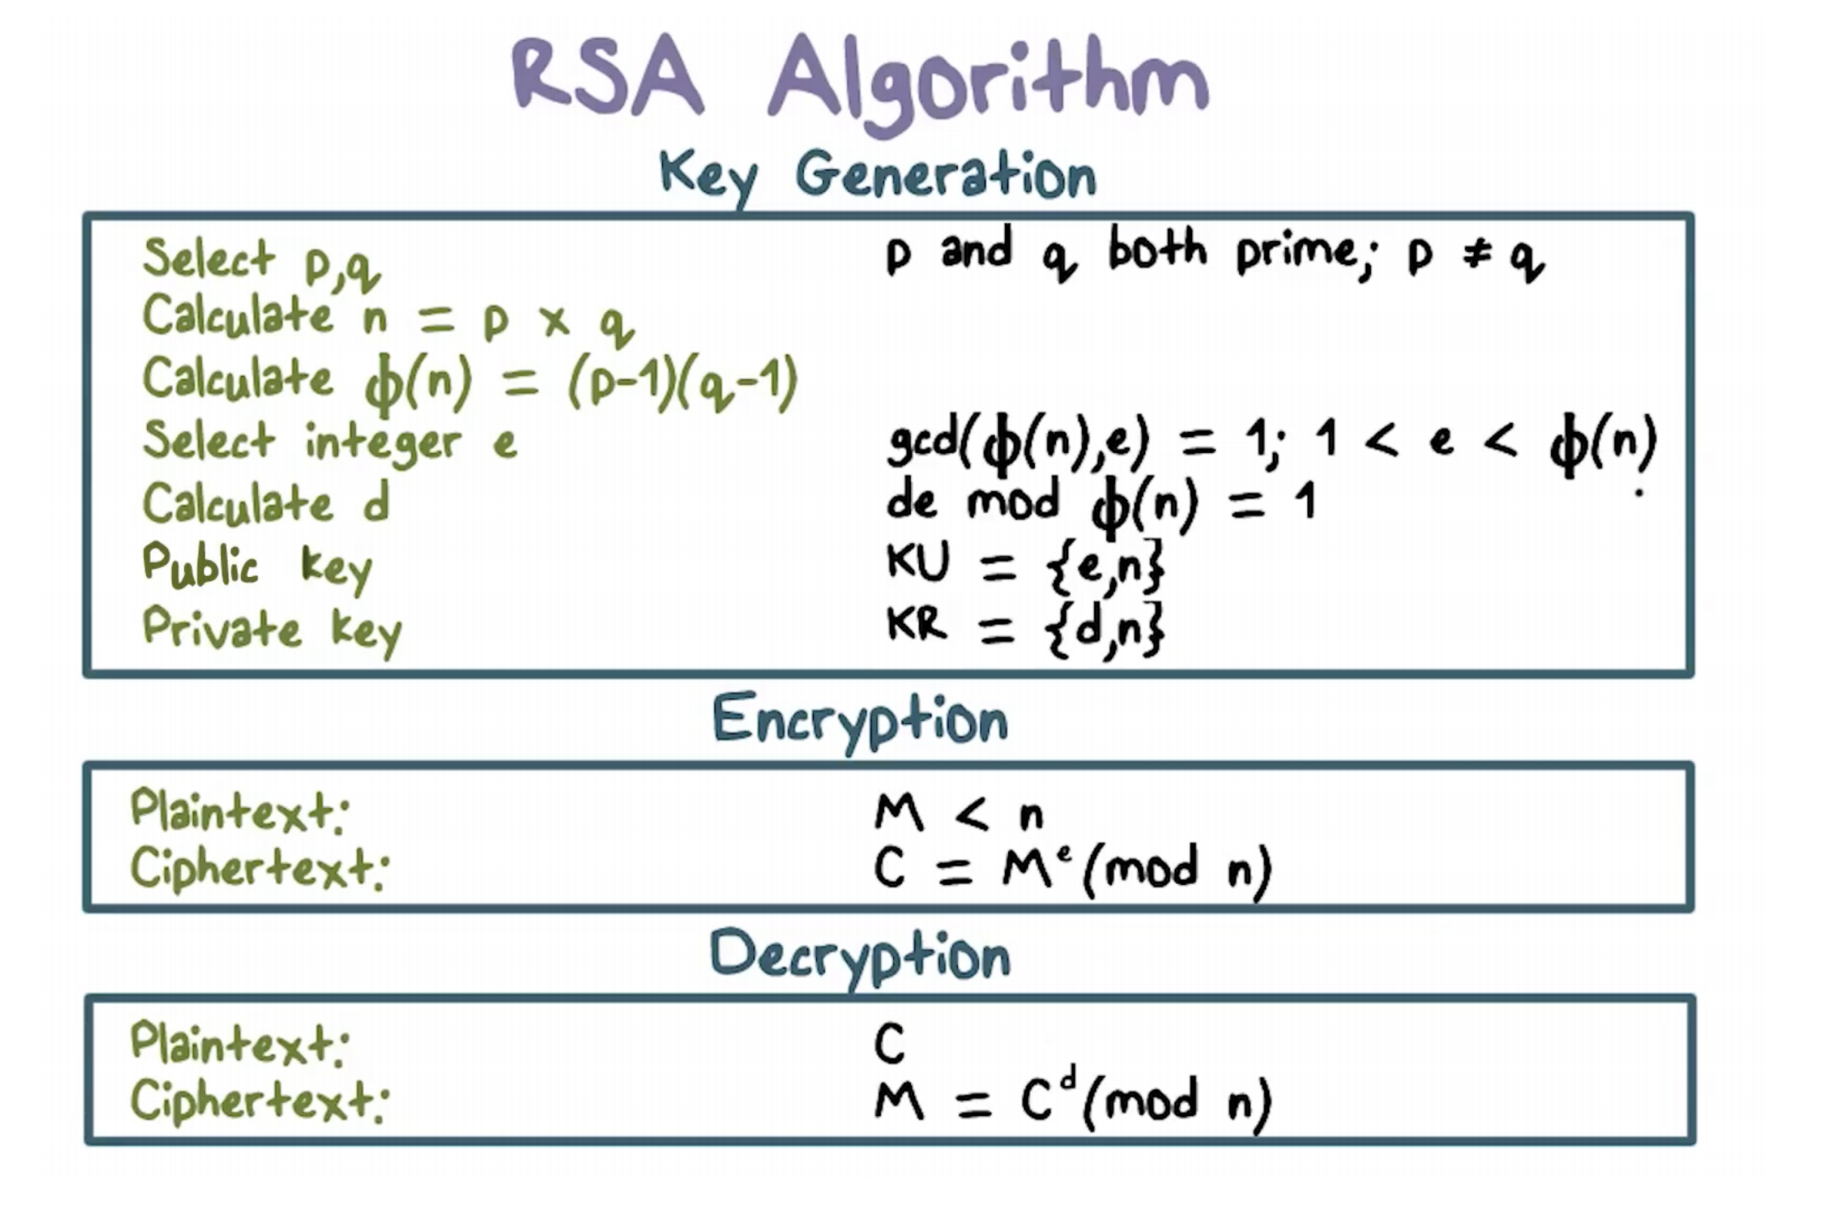 RSA Algorithm
Key Generation
Select p,q p and q both prime; p ≠ q
Calculate n = p x q
Calculate ф(n) = (p-1)(q-1)
Select integer e gcd(ф(n),e) = 1; 1 < e < ф(n)
Calculate d de mod ф(n) = 1
Public key KU = {e,n}
Private key KR = {d,n}
Encryption
Plaintext: M < n
Ciphertext: C = Mᵉ(mod n)
Decryption
Plaintext: C
Ciphertext: M = Cᵈ(mod n)